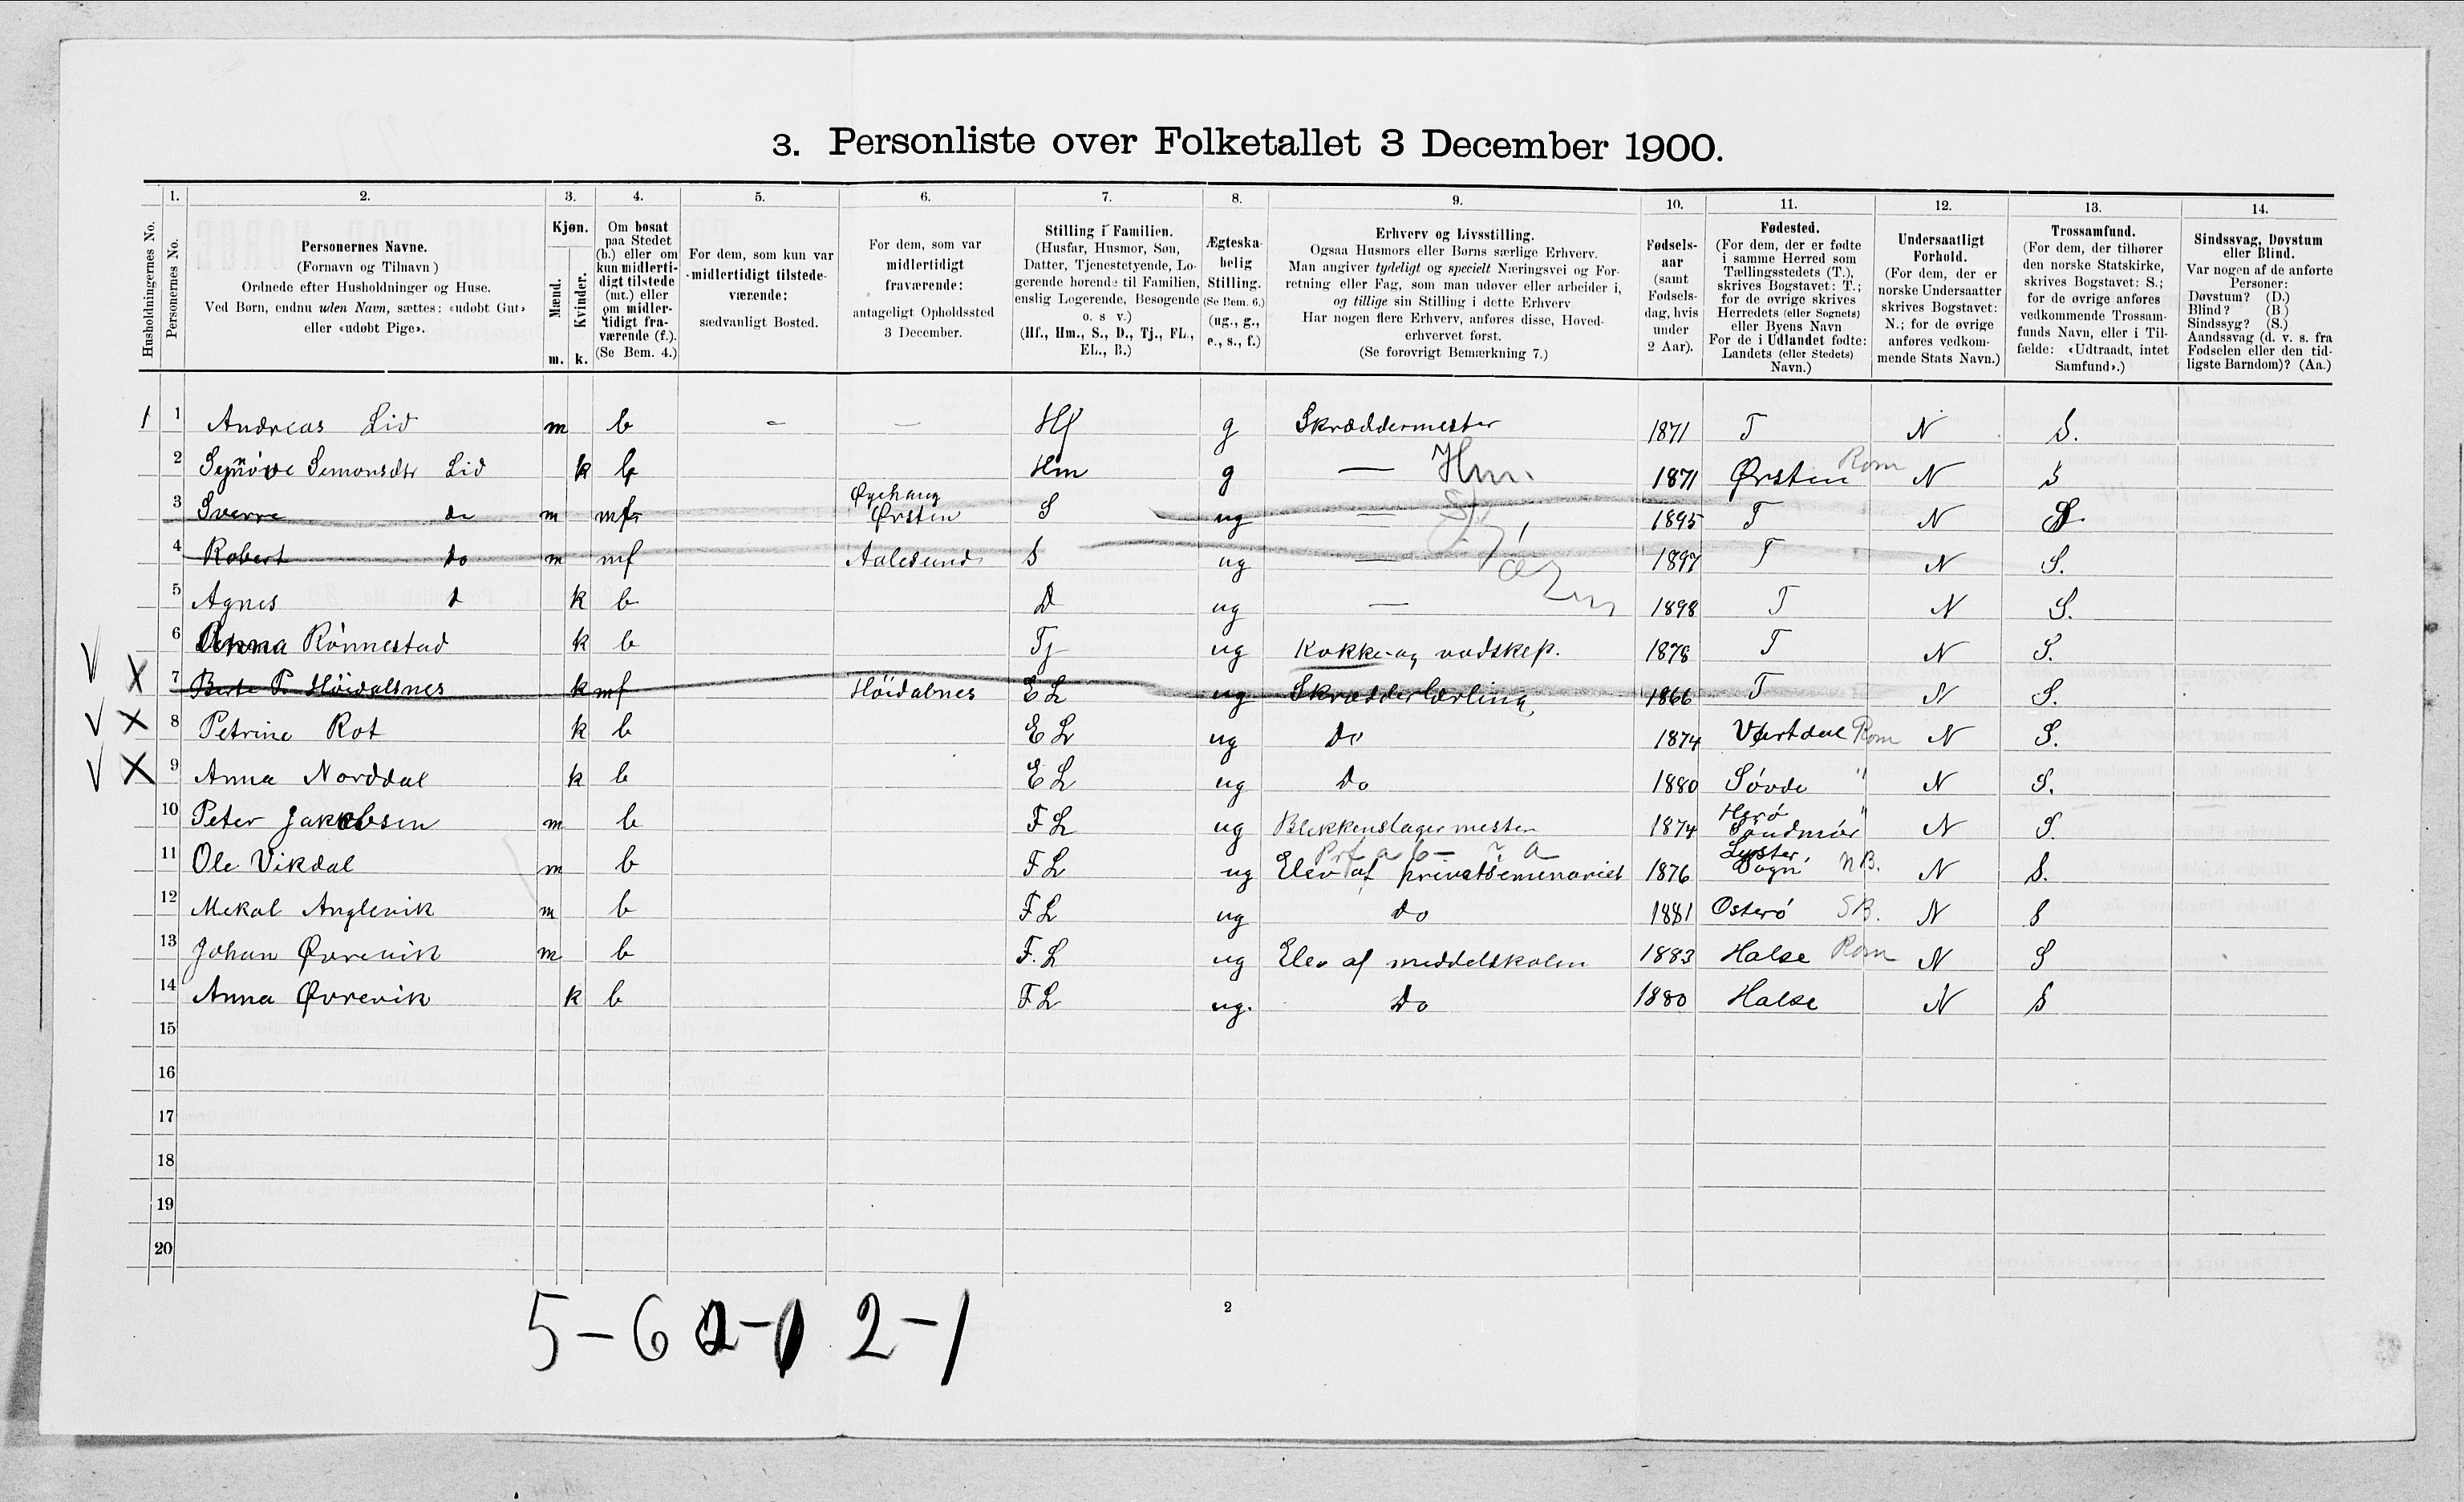 3. Personliste over Folketallet 3 December 1900.
Husholdningernes No.
1.
Personernes No.
2.
Personernes Navne.
(Fornavn og Tilnavn)
Ordnede efter Husholdninger og Huse.
Ved Børn, endnu uden Navn, sættes: «udøbt Gut»
eller «udøbt Pige».
3.
Kjøn.
Mænd.
Kvinder.
m. k.
4.
Om bosat
paa Stedet
(b.) eller om
kun midlerti-
digt tilstede
(mt.) eller
om midler-
tidigt fra-
værende (f.).
(Se Bem. 4.)
5.
For dem, som kun var
midlertidigt tilstede-
værende:
sædvanligt Bosted.
6.
For dem, som var
midlertidigt
fraværende:
antageligt Opholdssted
3 December.
7.
Stilling i Familien.
(Husfar, Husmor, Søn,
Datter, Tjenestetyende, Lo-
gerende hørende til Familien,
enslig Logerende, Besøgende
o. s v.)
(Hf., Hm., S., D., Tj., FL.,
EL., B.)
8.
Ægteska-
belig
Stilling.
(Se Bem. 6.)
(ug., g.,
e., s., f.)
9.
Erhverv og Livsstilling.
Ogsaa Husmors eller Børns særlige Erhverv.
Man angiver tydeligt og specielt Næringsvei og For-
retning eller Fag, som man udøver eller arbeider i,
og tillige sin Stilling i dette Erhverv
Har nogen flere Erhverv, anføres disse, Hoved-
erhvervet først.
(Se forøvrigt Bemærkning 7.)
10.
Fødsels-
aar
(samt
Fødsels-
dag, hvis
under
2 Aar).
11.
Fødested.
(For dem, der er fødte
i samme Herred som
Tællingsstedets (T.),
skrives Bogstavet: T.;
for de øvrige skrives
Herredets (eller Sognets)
eller Byens Navn
For de i Udlandet fødte:
Landets (eller Stedets)
Navn.)
12.
Undersaatligt
Forhold.
(For dem, der er
norske Undersaatter
skrives Bogstavet:
N.; for de øvrige
anføres vedkom-
mende Stats Navn.)
13.
Trossamfund.
(For dem, der tilhører
den norske Statskirke,
skrives Bogstavet: S.;
for de øvrige anføres
vedkommende Trossam-
funds Navn, eller i Til-
fælde: «Udtraadt, intet
Samfund».)
14.
Sindssvag, Døvstum
eller Blind.
Var nogen af de anførte
Personer:
Døvstum? (D.)
Blind? (B.)
Sindssyg? (S.)
Aandssvag (d. v. s. fra
Fødselen eller den tid-
ligste Barndom)? (Aa.)
1 1 Andreas Lid m b - - Hf g Skræddermester 1871 T N S.
2 Synnöve Semonsdtr Lid k b Hm g — Hm. 1871 Ørsten Rom N S
3 Sverre do m mf Øyehaug Ørsten S ug — 1895 T N S
4 Robert do m mf Aalesund S ug — 1897 T N S.
5 Agnes d k b D ug — 1898 T N S.
6 Anna Rönnestad k b Tj ug Kokke- og vadskep. 1878 T N S.
7 Berte P. Höidalsnes k mf Höidalsnes EL ug Skrædderlærling 1866 T N S.
8 Petrine Rot k b EL ug Do 1874 Vartdal Rom N S.
9 Anna Norddal k b EL ug Do 1880 Søvde " N S.
10 Peter Jakobsen m b FL ug Blikkenslagermester 1874 Herø Søndmør " N S.
11 Ole Vikdal m b FL ug Elev af privatseminariet 1876 Lyster, Sogn NB. N S.
12 Mekal Anglevik m b FL ug do 1881 Osterö SB. N S
13 Johan Øvrevik m b F.L ug Elev af middelskolen 1883 Halse Rom N S
14 Anna Øvrevik k b FL ug. Do 1880 Halse N S
15
16
17
18
19
20
2
5-6 2-1 2-1